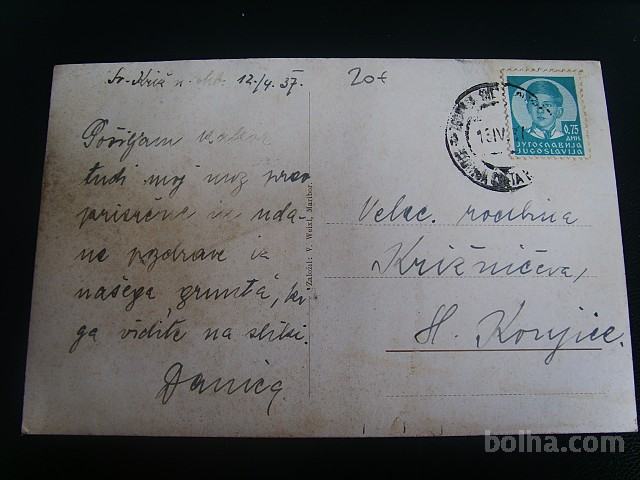 Sv. Križ n. 12./4. 37.
20+
Pošiljam
tudi moj muz prav
prisrčne in uda-
ne pozdrave iz
našega grunta, ki
ga vidite na sliki.
Danica
Založil: V. Weixl, Maribor.
0.75
ДИН.
ЈУГОСЛАВИЈА
JUGOSLAVIJA
Velec. rodbina
Križničeva,
Sl. Konjice.
bolha.com